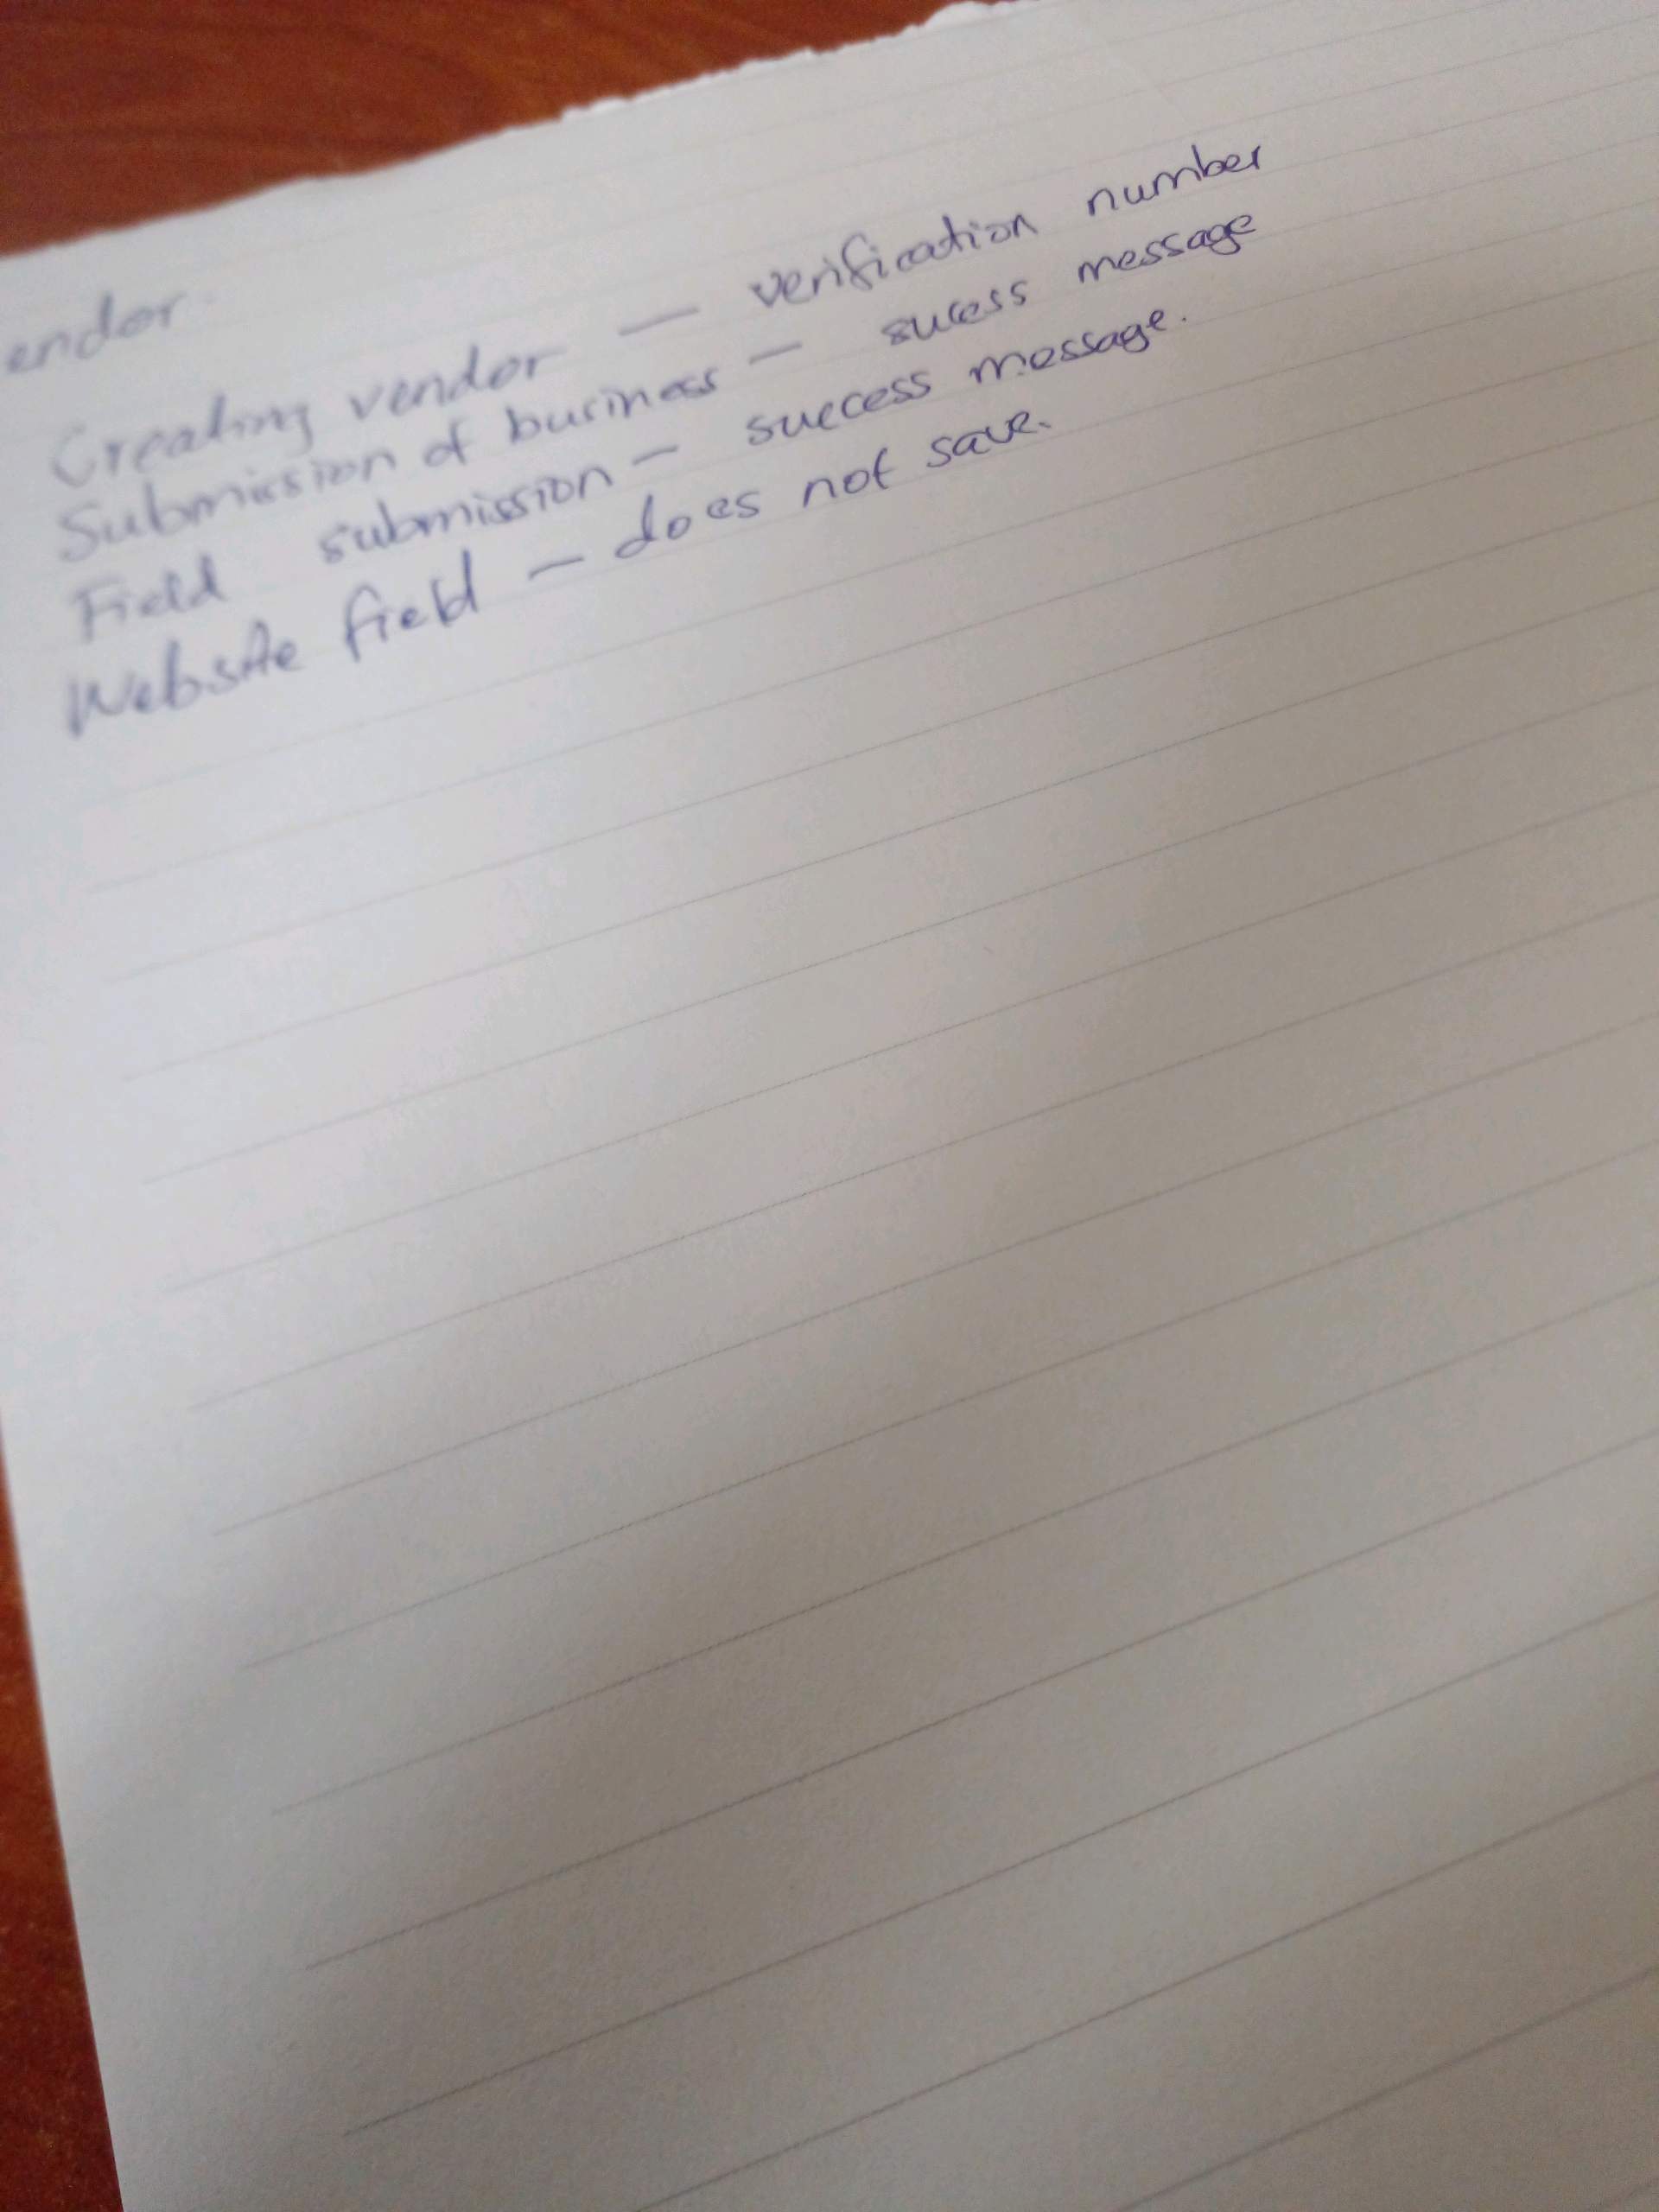 endor.
Creating vendor — verification number
Submission of business — sucess message
Field submission — success message.
Website field — does not save.